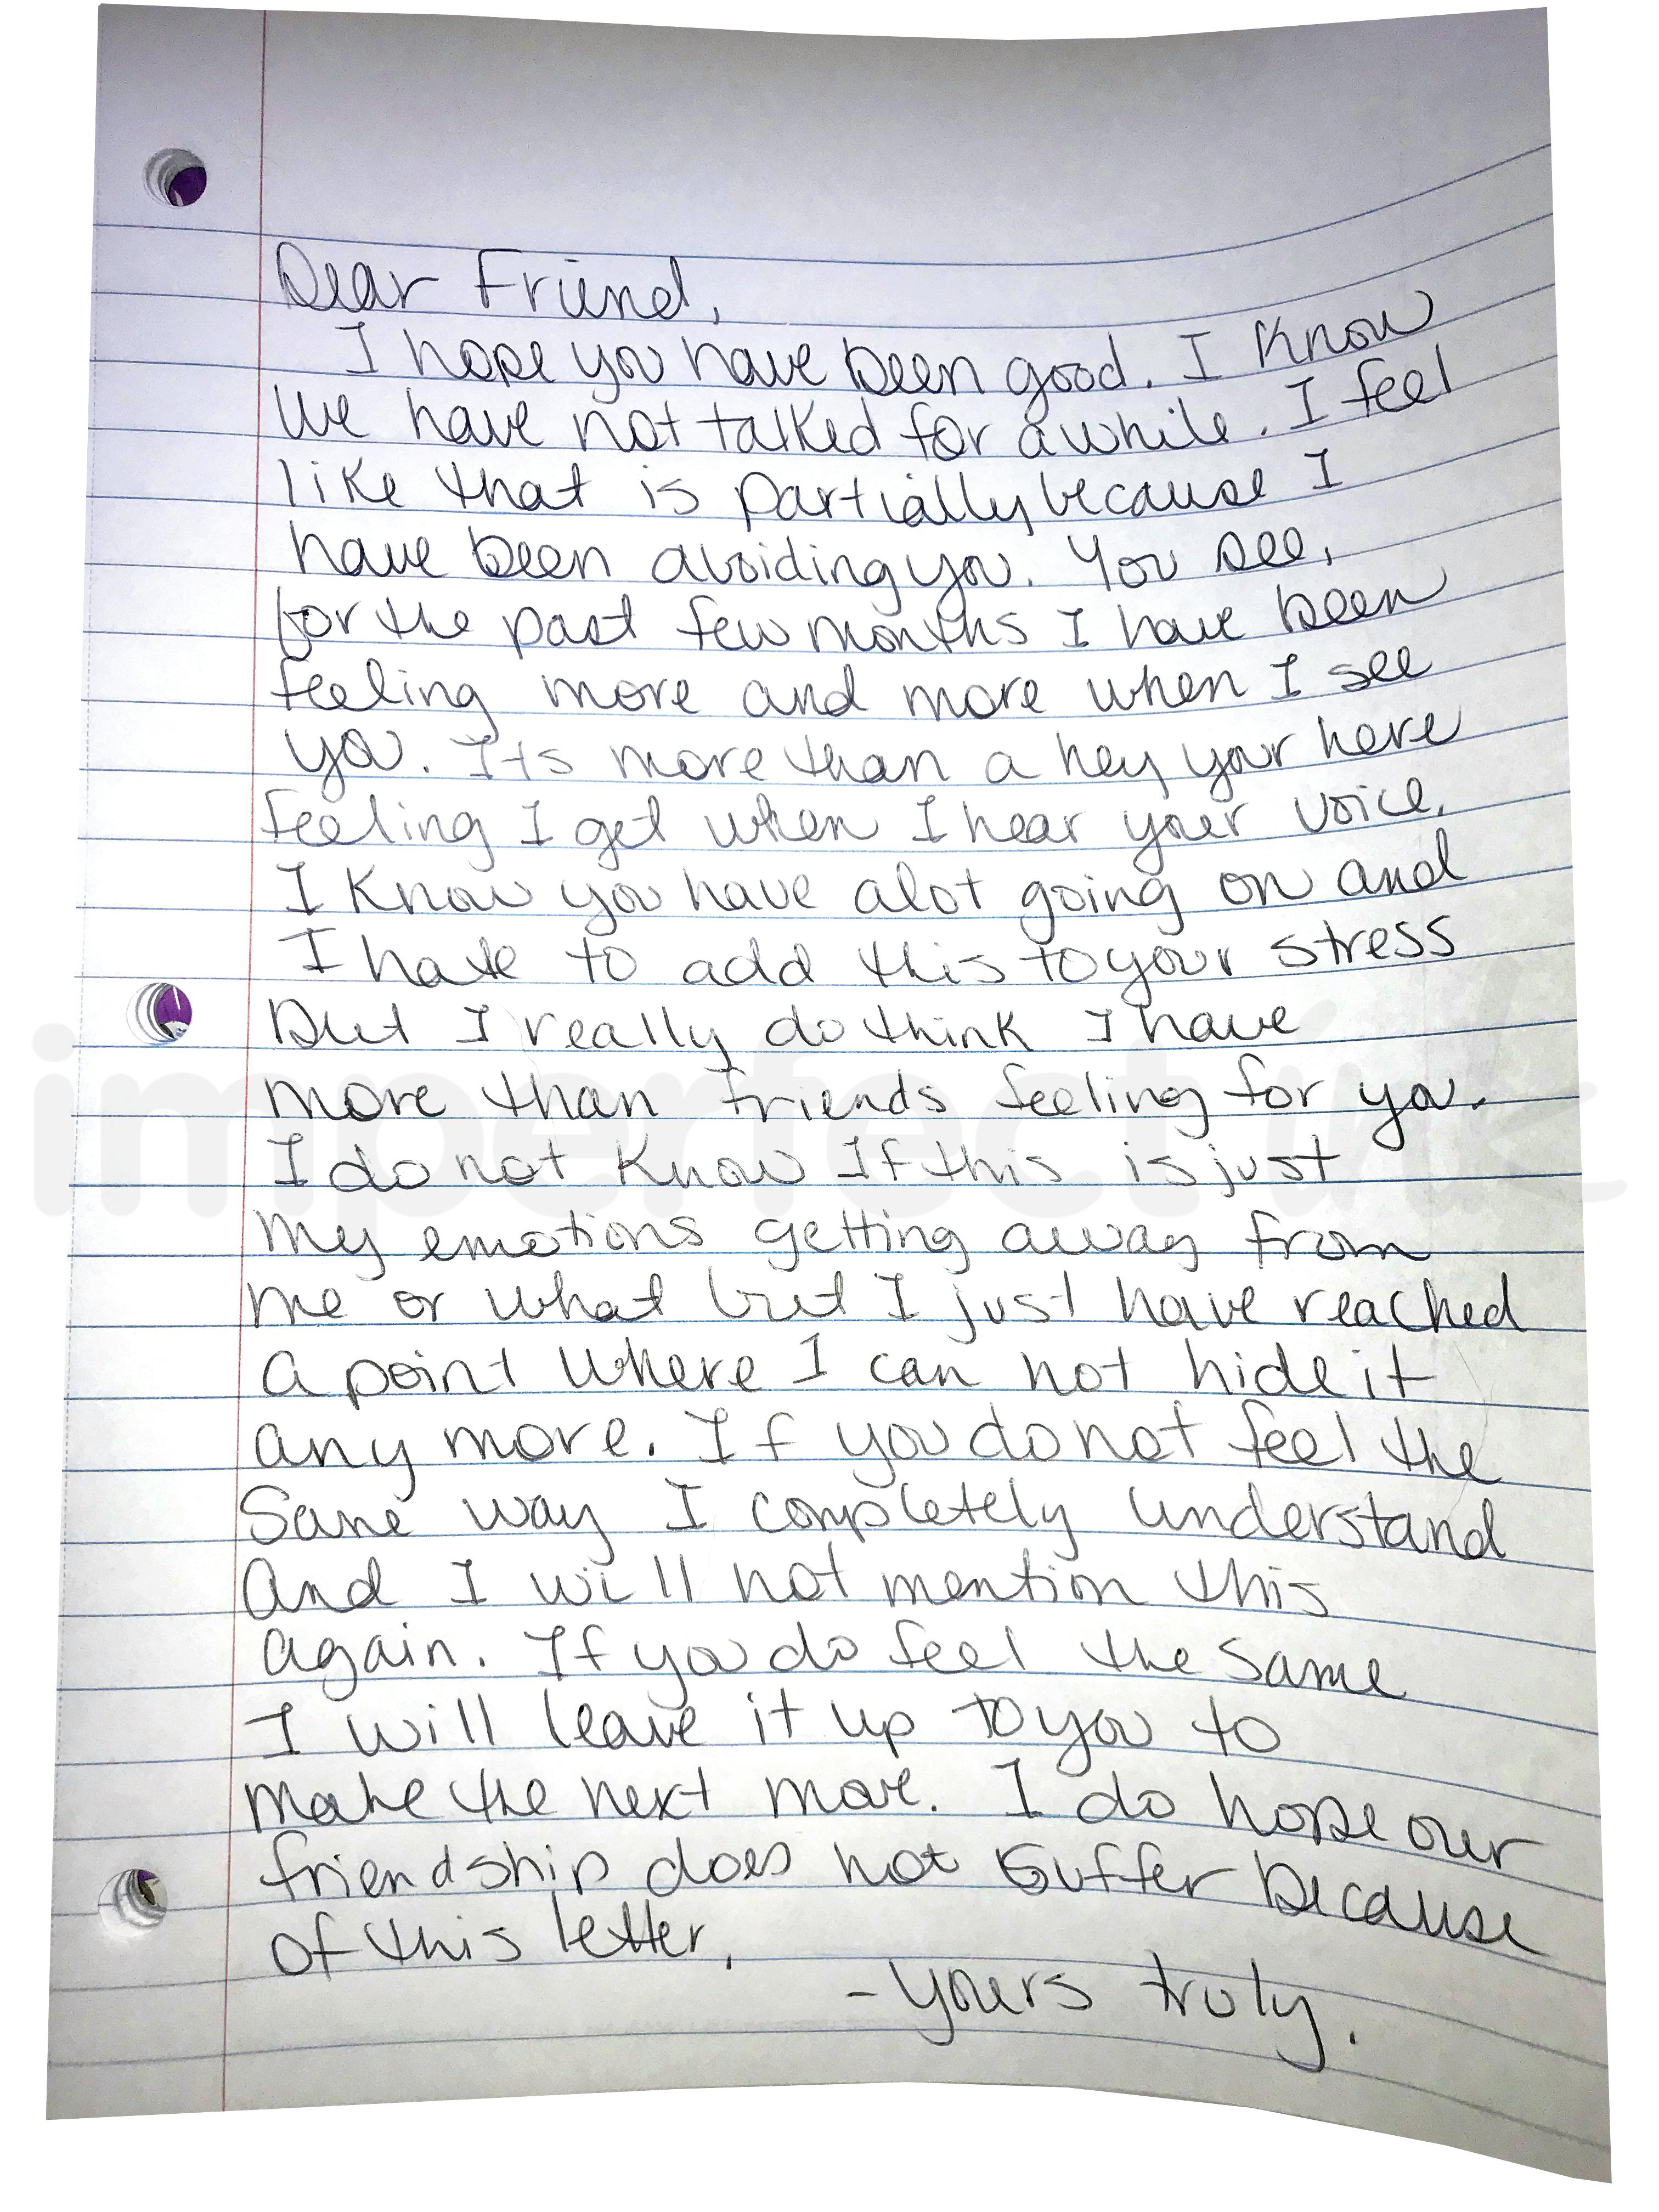 Dear Friend,
I hope you have been good. I know
we have not talked for awhile. I feel
like that is partially because I
have been avoiding you. You see,
for the past few months I have been
feeling more and more when I see
you. Its more than a hey your here
feeling I get when I hear your voice.
I know you have alot going on and
I hate to add this to your stress
but I really do think I have
more than friends feeling for you.
I do not know If this is just
my emotions getting away from
me or what but I just have reached
a point where I can not hide it
any more. If you do not feel the
Same way I completely understand
and I will not mention this
again. If you do feel the same
I will leave it up to you to
make the next move. I do hope our
friendship does not suffer because
of this letter.
- yours truly.
imperfect ink